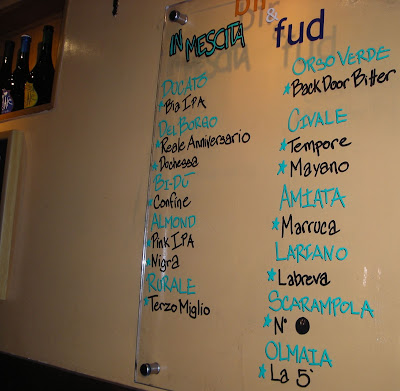 &
fud
IN MESCITA
DUCATO
*Bia IPA
DEL BORGO
*Reale Anniversario
*Duchessa
BI-DÙ
*Confine
ALMOND
*Pink IPA
*Nigra
RURALE
*Terzo Miglio
ORSO VERDE
*Back Door Bitter
CIVALE
*Tempore
*Mayano
AMIATA
*Marruca
LARIANO
*Labreva
SCARAMPOLA
*N°
OLMAIA
*La 5°